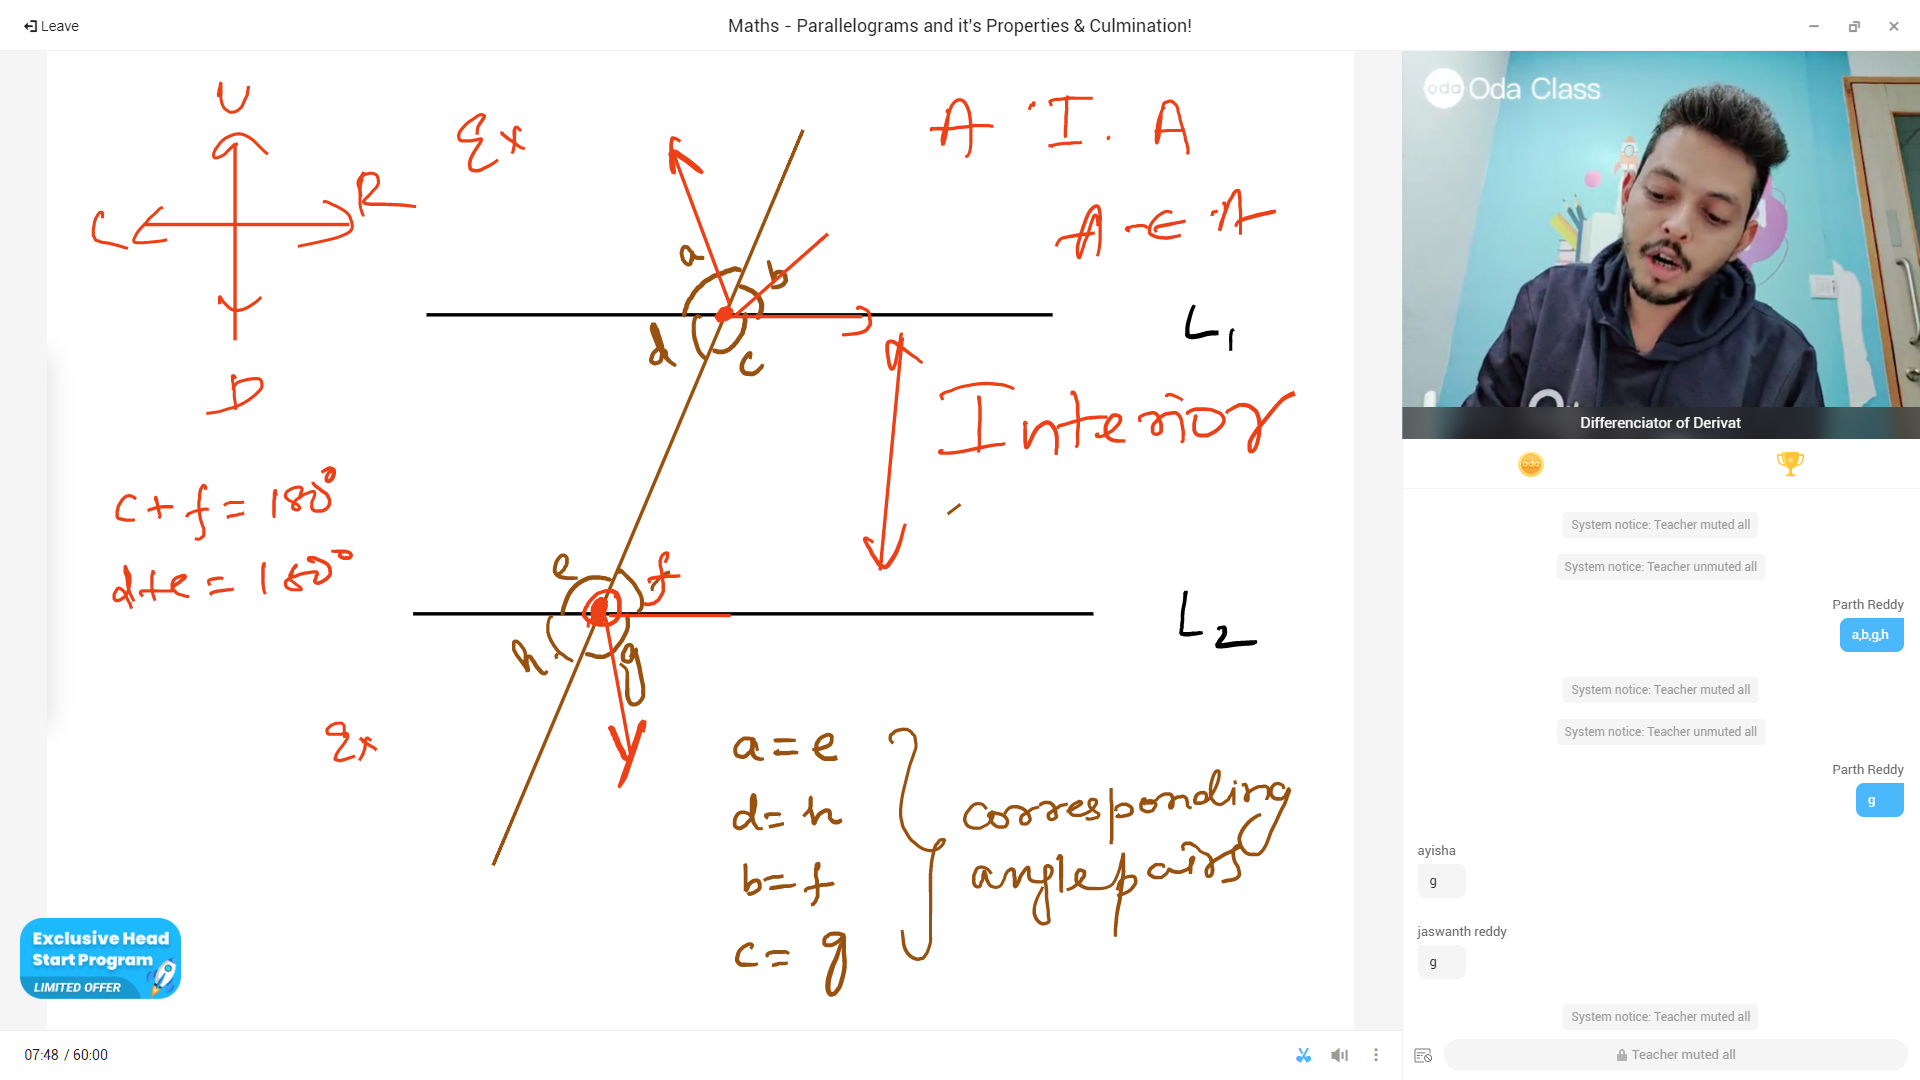 Leave
Maths - Parallelograms and it's Properties & Culmination!
U
L
R
D
Ex
A I. A
A-E-A
a
b
d
c
L1
Interior
c+f=180°
d+e=180°
e
f
h
g
L2
Ex
a=e
d=h
b=f
c=g
corresponding
angle pairs
Exclusive Head
Start Program
LIMITED OFFER
07:48 / 60:00
oda Oda Class
Differenciator of Derivat
oda
System notice: Teacher muted all
System notice: Teacher unmuted all
Parth Reddy
a,b,g,h
System notice: Teacher muted all
System notice: Teacher unmuted all
Parth Reddy
g
ayisha
g
jaswanth reddy
g
System notice: Teacher muted all
Teacher muted all